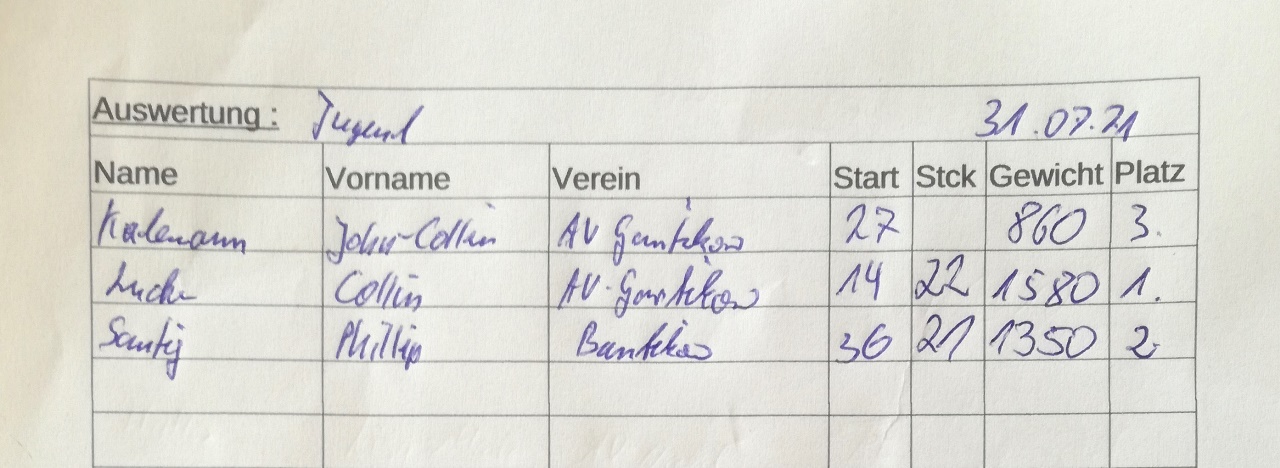 Auswertung : Jugend 31.07.21
Name Vorname Verein Start Stck Gewicht Platz
John-Collin AV Gantikow 27 860 3.
Collin AV-Gantikow 14 22 1580 1.
Phillip Bantikow 36 21 1350 2.